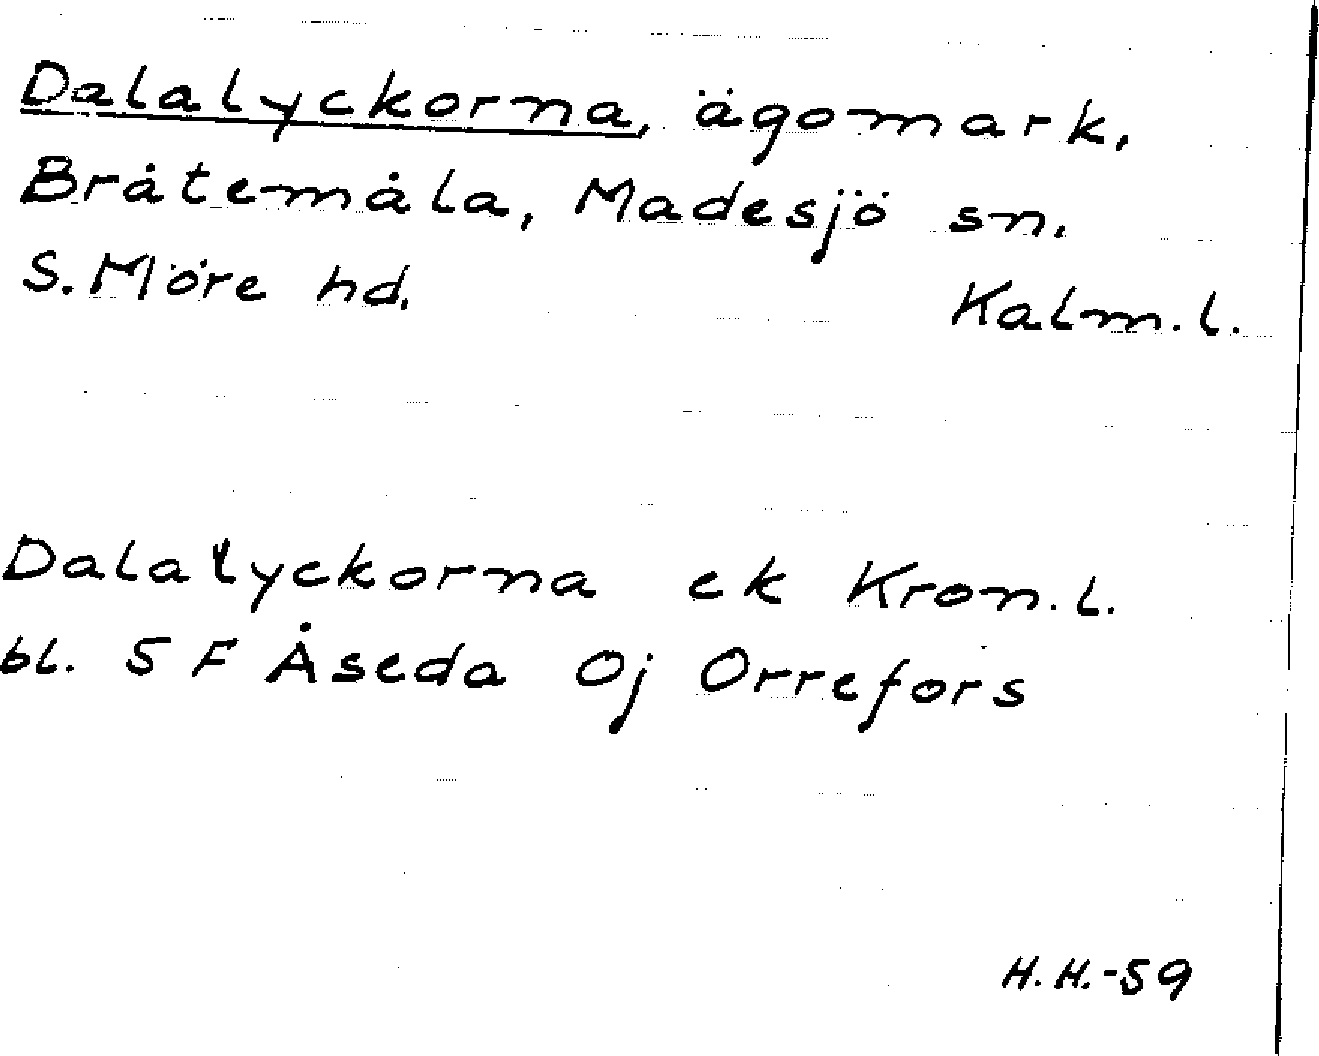 Dalalyckorna, ägomark,
Bråtemåla, Madesjö sn.
S. Möre hd. Kalm. l.
Dalalyckorna ek Kron. l.
bl. 5 F Åseda Oj Orrefors
H.H.-59